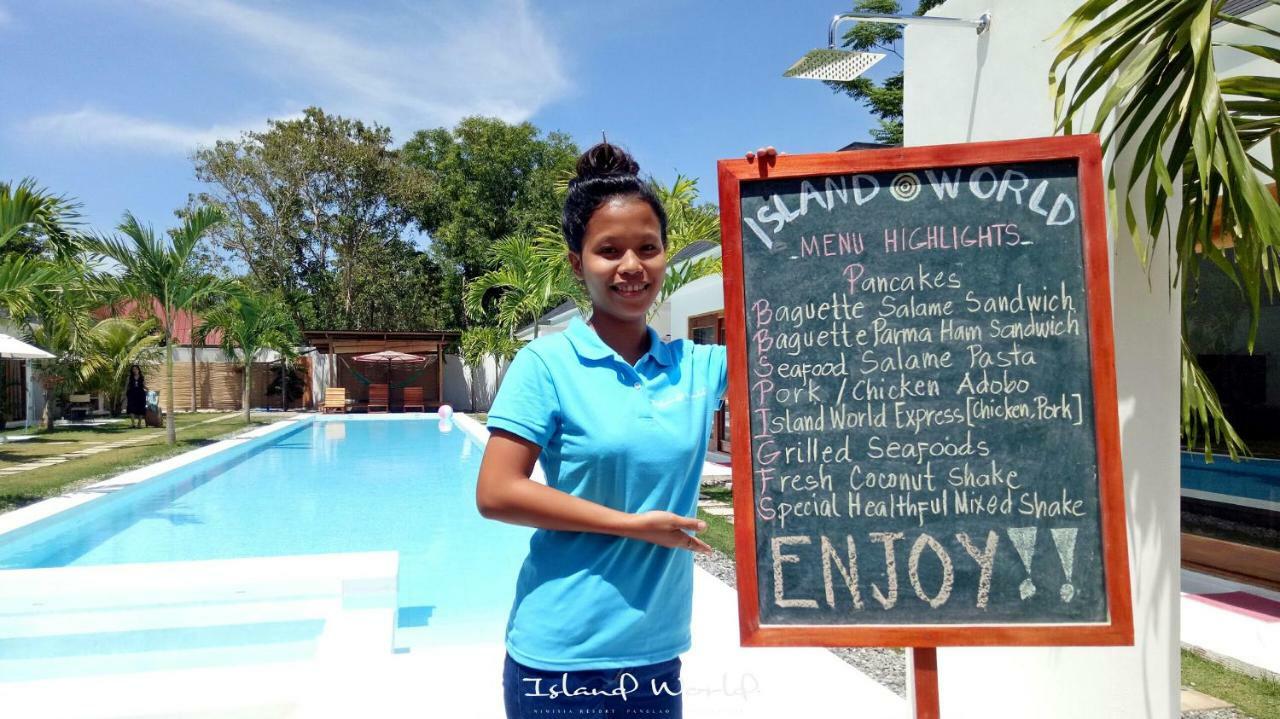 ISLAND WORLD
MENU HIGHLIGHTS
Pancakes
Baguette Salame Sandwich
Baguette Parma Ham Sandwich
Seafood Salame Pasta
Pork / Chicken Adobo
Island World Express [Chicken, Pork]
Grilled Seafoods
Fresh Coconut Shake
Special Healthful Mixed Shake
ENJOY!!
Island World
RESORT PANGLAO